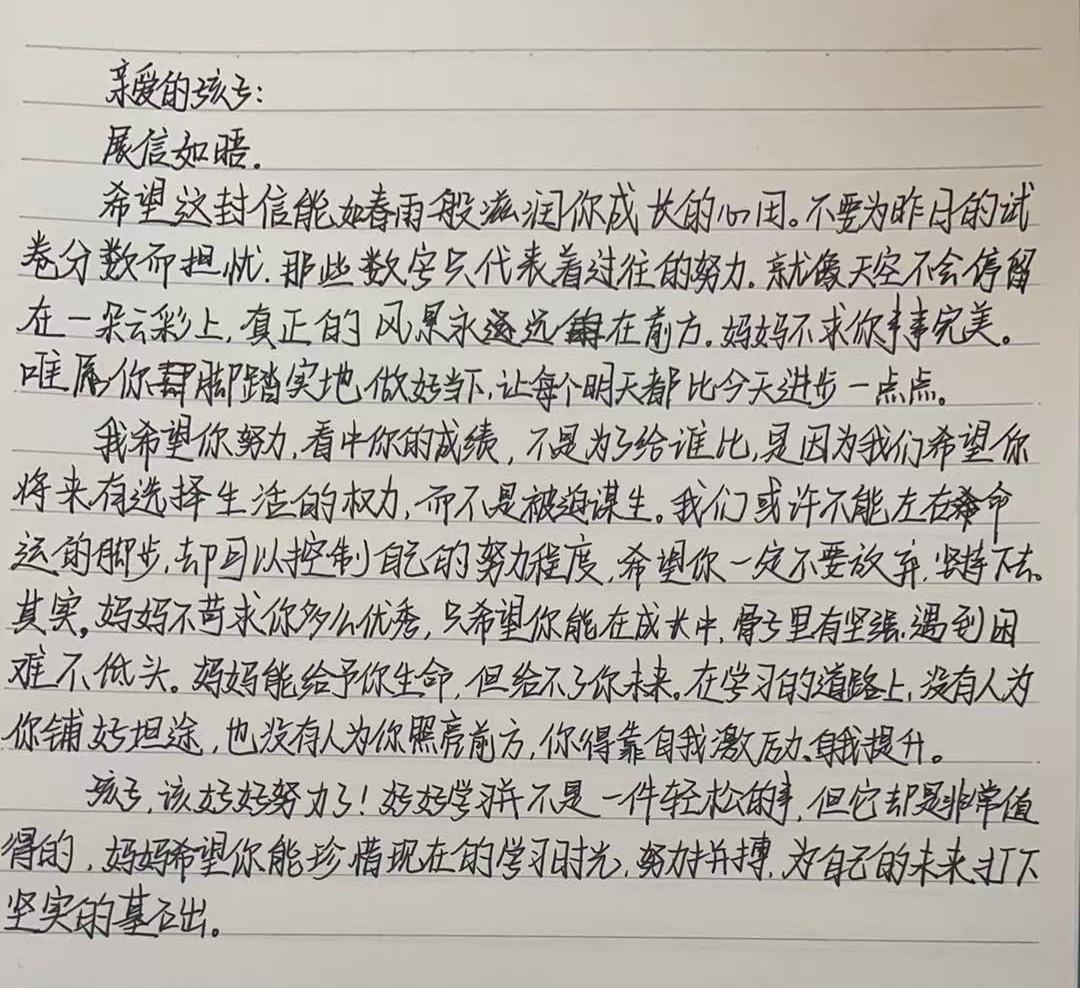 亲爱的孩子：
展信如晤.
希望这封信能如春雨般滋润你成长的心田。不要为昨日的试
卷分数而担忧.那些数字只代表着过往的努力.就像天空不会停留
在一朵云彩上,真正的风景永远在前方.妈妈不求你事事完美。
唯愿你脚踏实地做好当下,让每个明天都比今天进步一点点。
我希望你努力,看中你的成绩,不是为了给谁比,是因为我们希望你
将来有选择生活的权力,而不是被迫谋生。我们或许不能左右命
运的脚步,却可以控制自己的努力程度,希望你一定不要放弃,坚持下去。
其实,妈妈不苛求你多么优秀,只希望你能在成长中,骨子里有坚强.遇到困
难不低头。妈妈能给予你生命,但给不了你未来。在学习的道路上,没有人为
你铺好坦途,也没有人为你照亮前方,你得靠自我激励、自我提升。
孩子,该好好努力了!好好学习并不是一件轻松的事,但它却是非常值
得的,妈妈希望你能珍惜现在的学习时光,努力拼搏,为自己的未来打下
坚实的基础。